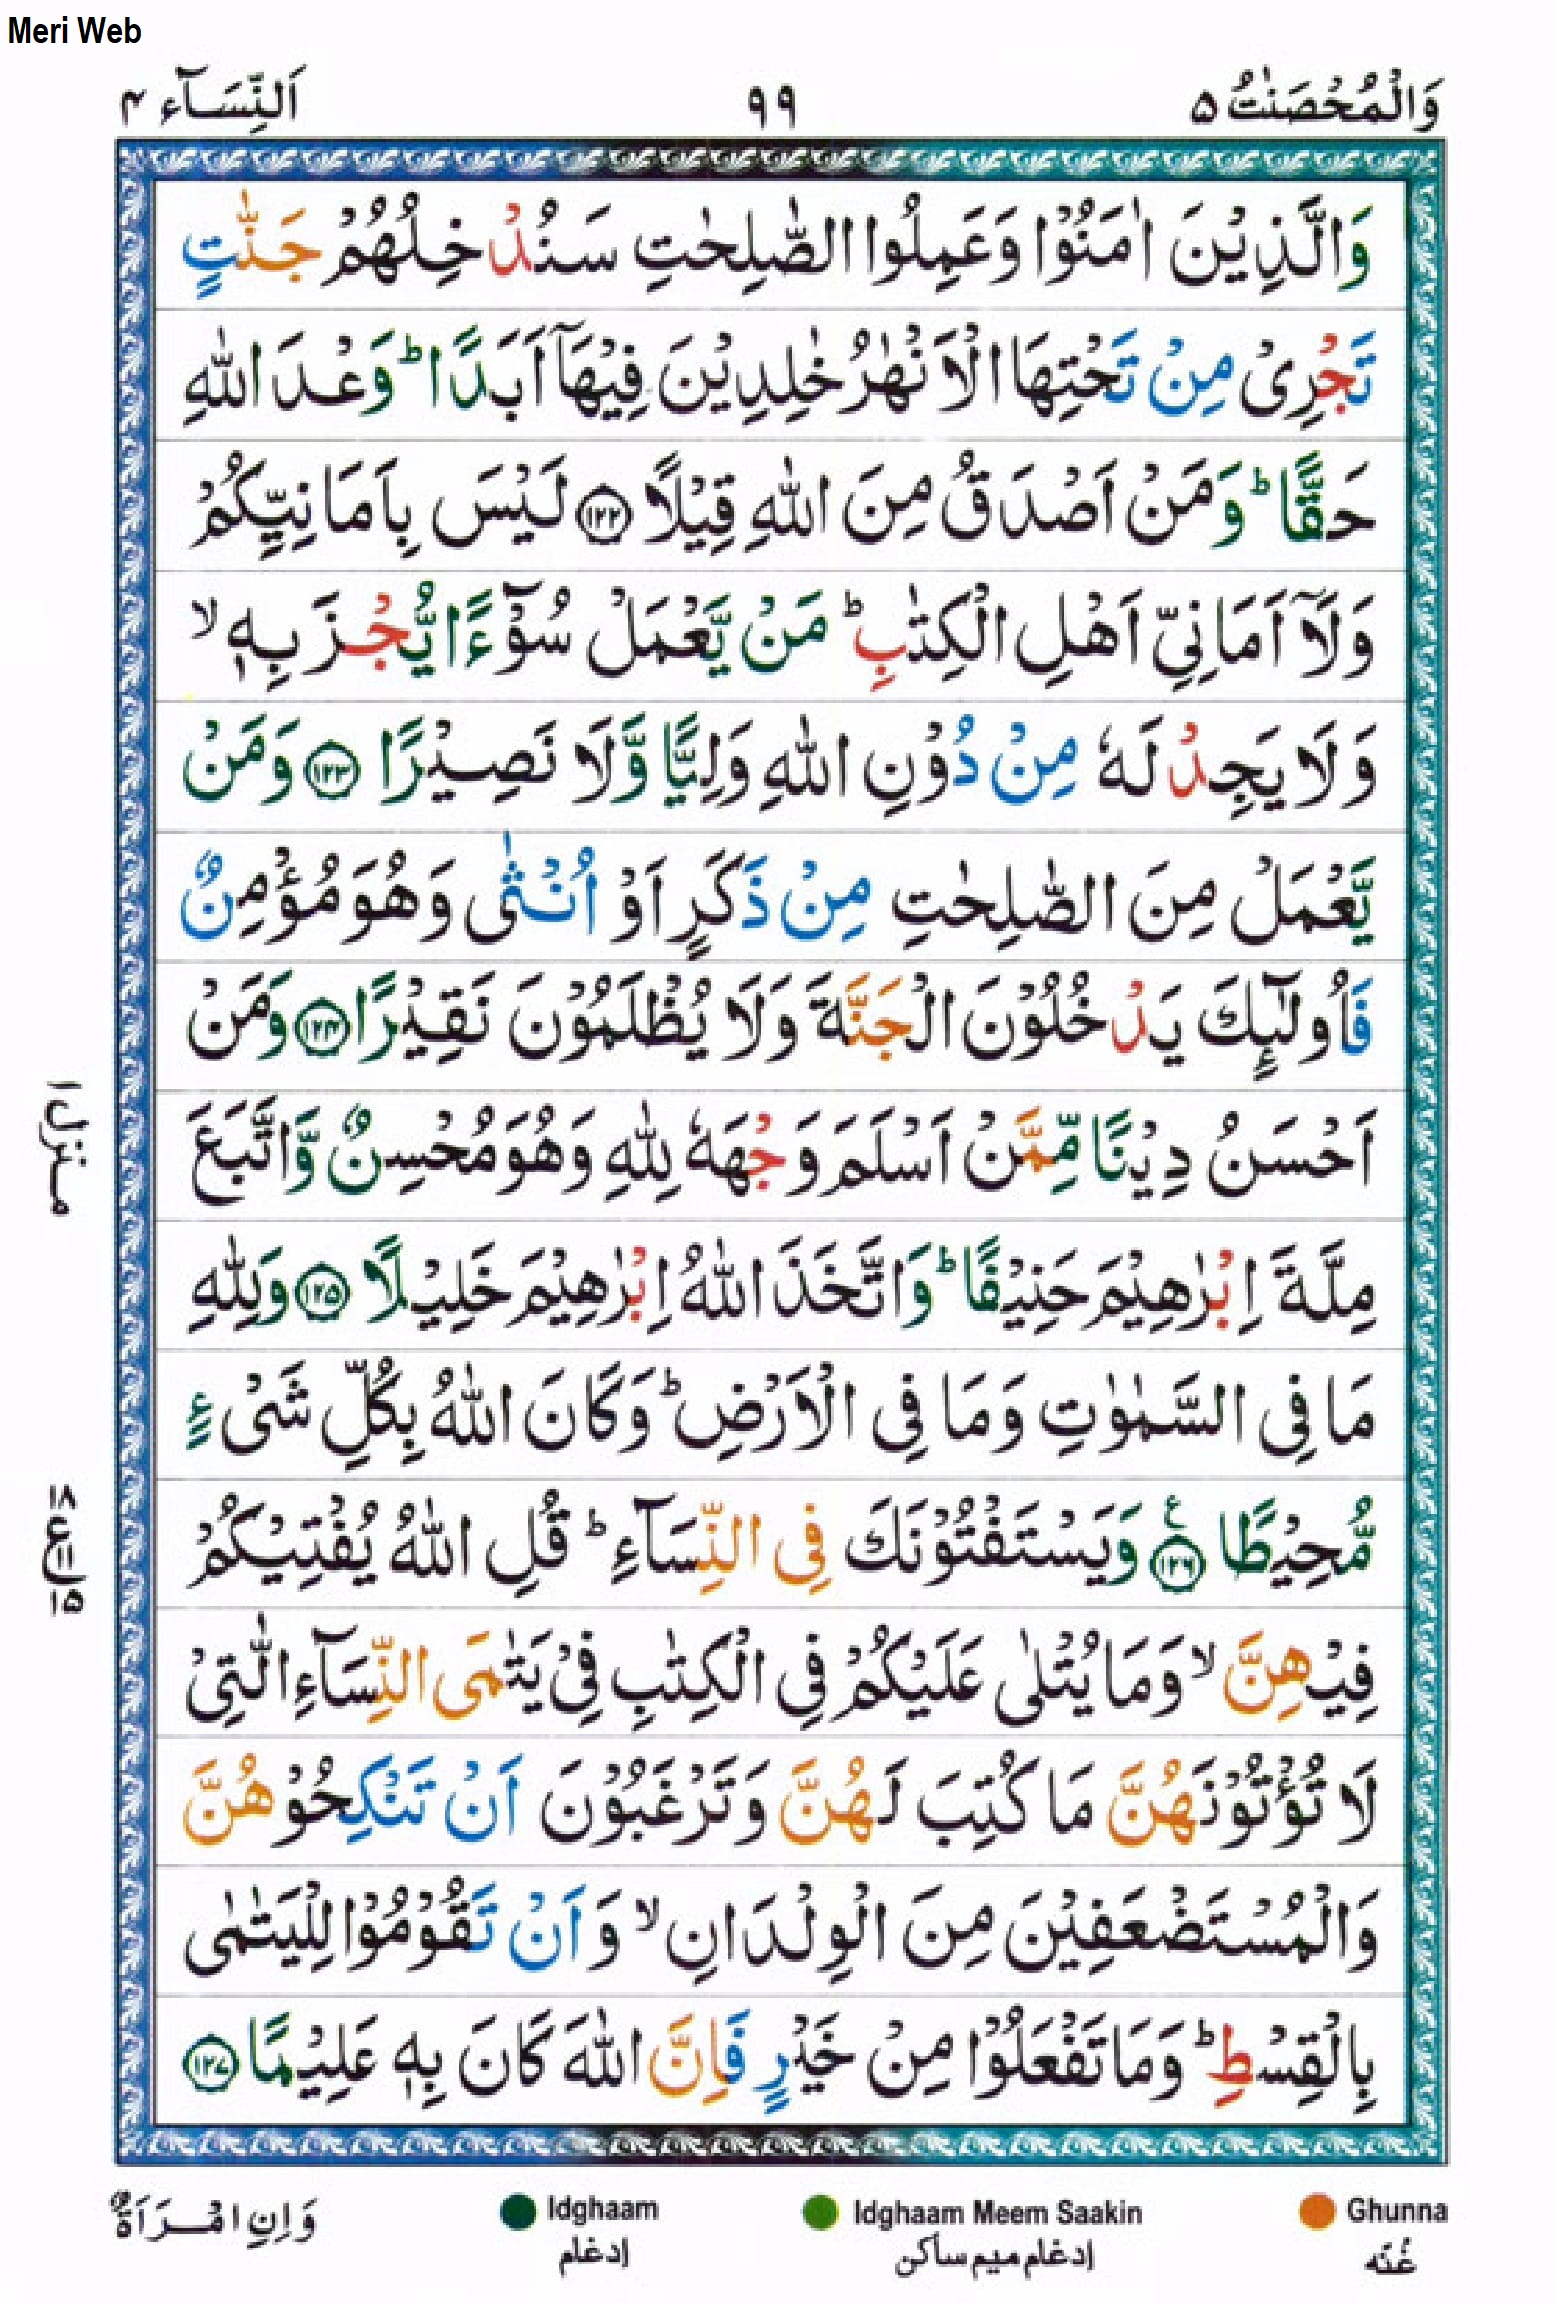 Meri Web
وَالْمُحْصَنٰتُ ۵ ۹۹ اَلنِّسَآء ۴
وَالَّذِيْنَ اٰمَنُوْا وَعَمِلُوا الصّٰلِحٰتِ سَنُدْخِلُهُمْ جَنّٰتٍ
تَجْرِىْ مِنْ تَحْتِهَا الْاَنْهٰرُ خٰلِدِيْنَ فِيْهَآ اَبَدًا ؕ وَعْدَ اللّٰهِ
حَقًّا ؕ وَمَنْ اَصْدَقُ مِنَ اللّٰهِ قِيْلًا ۝۱۲۲ لَيْسَ بِاَمَانِيِّكُمْ
وَلَآ اَمَانِىِّ اَهْلِ الْكِتٰبِ ؕ مَنْ يَّعْمَلْ سُوْٓءًا يُّجْزَ بِهٖ ۙ
وَلَا يَجِدْ لَهٗ مِنْ دُوْنِ اللّٰهِ وَلِيًّا وَّلَا نَصِيْرًا ۝۱۲۳ وَمَنْ
يَّعْمَلْ مِنَ الصّٰلِحٰتِ مِنْ ذَكَرٍ اَوْ اُنْثٰى وَهُوَ مُؤْمِنٌ
فَاُولٰٓئِكَ يَدْخُلُوْنَ الْجَنَّةَ وَلَا يُظْلَمُوْنَ نَقِيْرًا ۝۱۲۴ وَمَنْ
اَحْسَنُ دِيْنًا مِّمَّنْ اَسْلَمَ وَجْهَهٗ لِلّٰهِ وَهُوَ مُحْسِنٌ وَّاتَّبَعَ
مِلَّةَ اِبْرٰهِيْمَ حَنِيْفًا ؕ وَاتَّخَذَ اللّٰهُ اِبْرٰهِيْمَ خَلِيْلًا ۝۱۲۵ وَلِلّٰهِ
مَا فِى السَّمٰوٰتِ وَمَا فِى الْاَرْضِ ؕ وَكَانَ اللّٰهُ بِكُلِّ شَىْءٍ
مُّحِيْطًا ۝۱۲۶ ۧ وَيَسْتَفْتُوْنَكَ فِى النِّسَآءِ ؕ قُلِ اللّٰهُ يُفْتِيْكُمْ
فِيْهِنَّ ۙ وَمَا يُتْلٰى عَلَيْكُمْ فِى الْكِتٰبِ فِىْ يَتٰمَى النِّسَآءِ الّٰتِىْ
لَا تُؤْتُوْنَهُنَّ مَا كُتِبَ لَهُنَّ وَتَرْغَبُوْنَ اَنْ تَنْكِحُوْهُنَّ
وَالْمُسْتَضْعَفِيْنَ مِنَ الْوِلْدَانِ ۙ وَاَنْ تَقُوْمُوْا لِلْيَتٰمٰى
بِالْقِسْطِ ؕ وَمَا تَفْعَلُوْا مِنْ خَيْرٍ فَاِنَّ اللّٰهَ كَانَ بِهٖ عَلِيْمًا ۝۱۲۷
منزل ۱
۱۸ ع ۱۱ ۱۵
وَاِنِ امْرَاَةٌ
Idghaam
ادغام
Idghaam Meem Saakin
ادغام میم ساکن
Ghunna
غُنّه